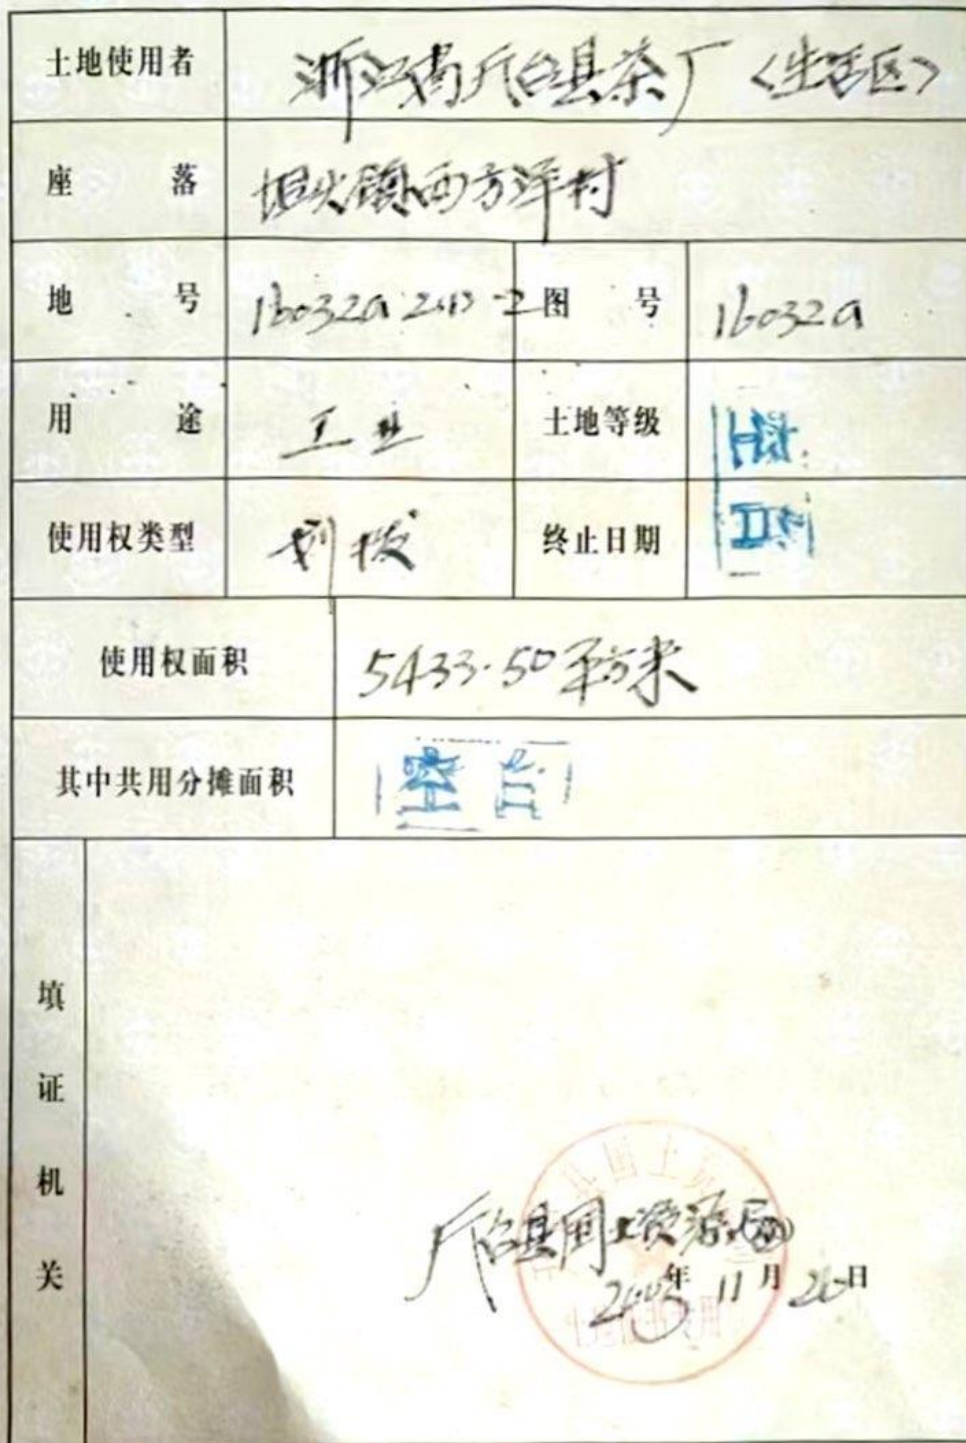 土地使用者 浙江省天台县茶厂（生活区）
座落 坦头镇西方洋村
地号 16032a 图号 16032a
用途 工业 土地等级
使用权类型 划拨 终止日期
使用权面积 5433.50平方米
其中共用分摊面积 空白
填证机关
天台县国土资源局
年11月日